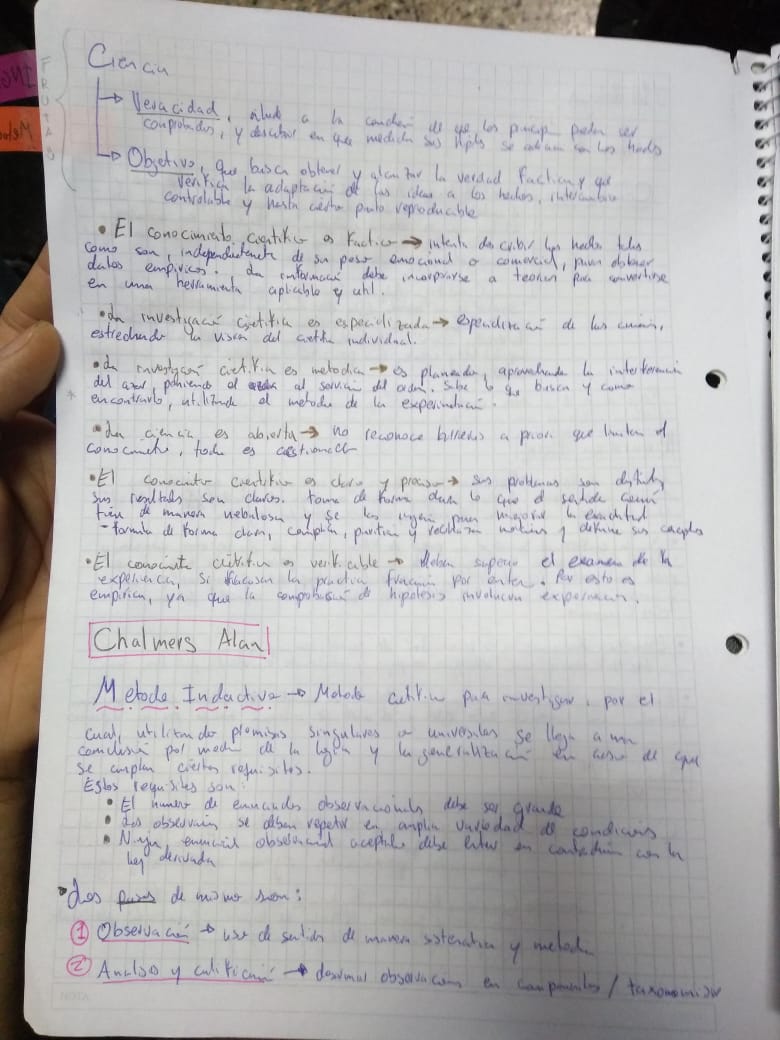 FRUTAS
Ciencia
→ Veracidad, alude a la condición de que los princip pueden ser
comprobados, y descubrir en que medida sus hipts se adecuan con los hechos
→ Objetiva, que busca obtener y alcanzar la verdad factica y que
verifica la adaptación de las ideas a los hechos, intercambio
controlable y hasta cierto punto reproducable
• El conocimiento científico es factico → intenta describir los hechos tales
como son, independientemente de su peso emocional o comercial, para obtener
datos empíricos. La información debe incorporarse a teorías para convertirse
en una herramienta aplicable y util.
• La investigación científica es especializada → especialización de las
estrechando la visión del científico individual.
• La investigación científica es metodica → es planeada, aprovechando la interferencia
del azar, poniendo al al servicio del orden. Sabe lo que busca y como
encontrarlo, utilizando el metodo de la experimentación.
• La ciencia es abierta → no reconoce barreras a priori que limiten el
conocimiento, todo es
• El conocimiento científico es claro y preciso → sus problemas son
sus resultados son claros. toma de forma clara lo que el sentido comun
de manera nebulosa y se las para mejorar la exactitud
- formula de forma clara, y nociones y define sus conceptos
• El conocimiento científico es verificable → deben superar el examen de la
experiencia, si fracasan la practica fracasan por entero. Por esto es
empírica, ya que la comprobación de hipotesis involucra
Chalmers Alan
Metodo Inductivo → Metodo científico para investigar, por el
cual, utilizando premisas singulares o universales se llega a una
conclusión por medio de la logica y la generalización en caso de que
se cumplan ciertos requisitos.
Estos requisitos son:
• El numero de enunciados observacionales debe ser grande
• Las observaciones se deben repetir en amplia variedad de condiciones
• Ningun enunciado observacional aceptado debe entrar en contradicción con la
ley derivada
• Los pasos de mismo son:
① Observación → uso de sentidos de manera sistematica y metodica
② Analisis y → observaciones en componentes / taxonomizar
NOTA